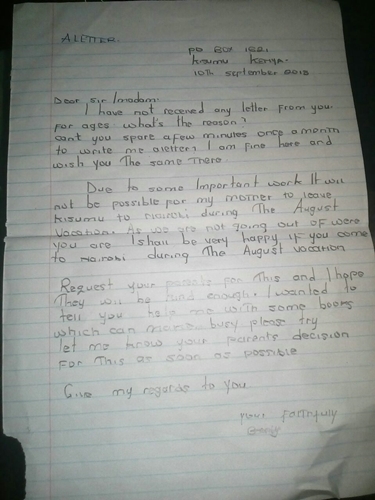 A LETTER.
PO BOX 1221
KISUMU KENYA.
10th september 2012
Dear Sir/madam.
I have not received any letter from you
for ages what's the reason?
cant you spare a few minutes once a month
to write me a letter? I am fine here and
wish you The same There.
Due to some Important work It will
not be possible for my mother to leave
Kisumu to Nairobi during The August
vocation. As we are not going out of were
you are I shall be very happy if you come
to Nairobi during The August vocation
Request your parents for This and I hope
They will be kind enough. I wanted to
tell you help me with some books
which can busy please try
let me know your parents decision
For This as soon as possible
Give my regards to you
your faithfuly